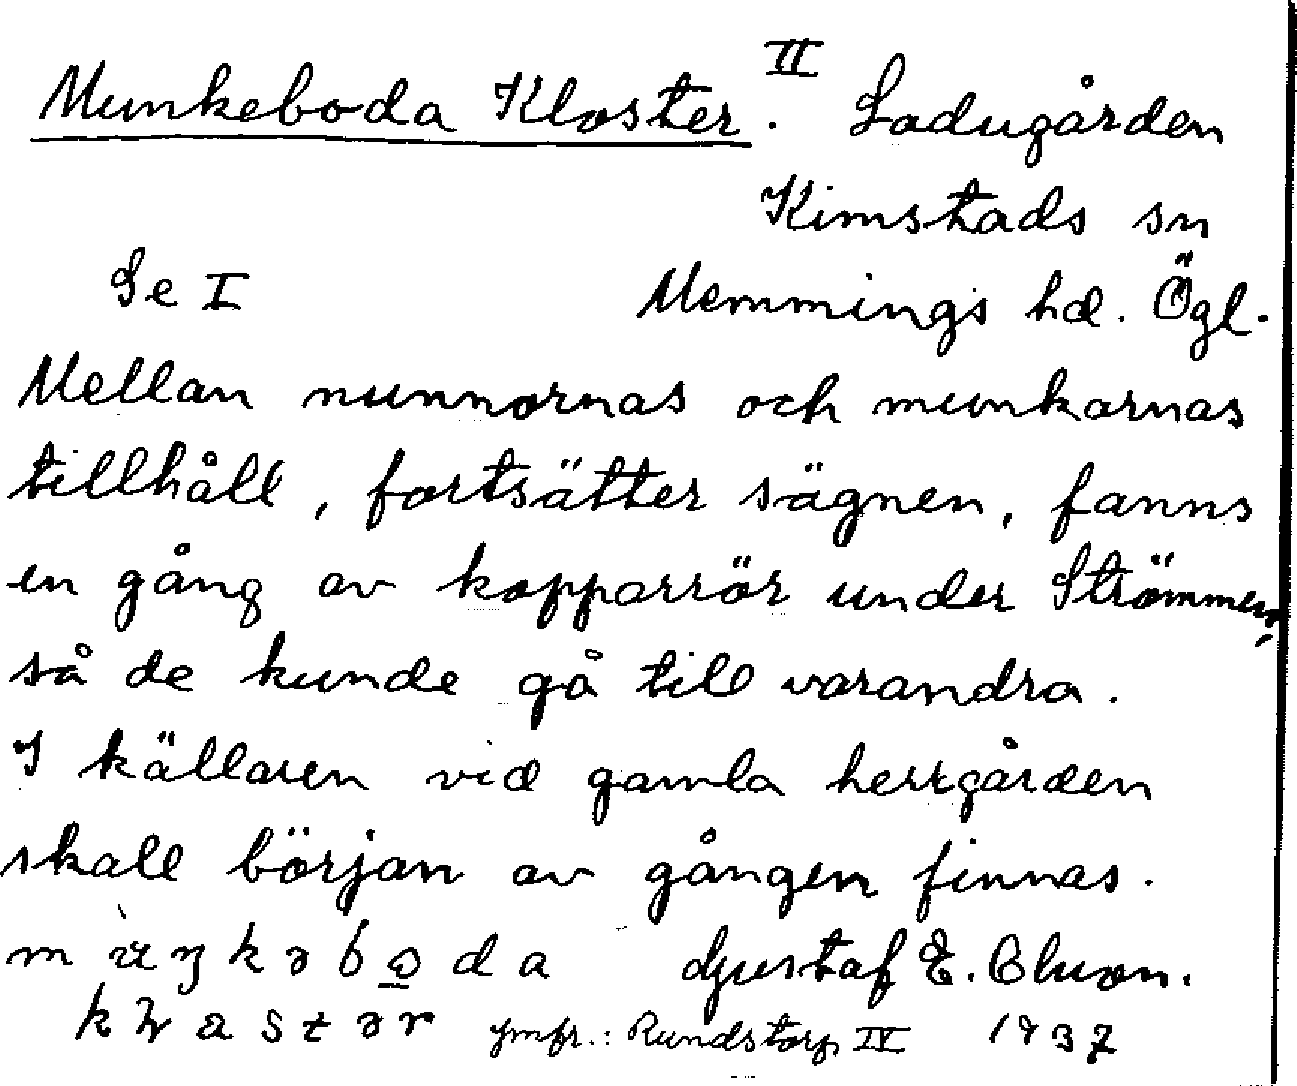 Munkeboda Kloster. II Ladugården
Kimstads sn
Se I Memmings hd. Ögl.
Mellan nunnornas och munkarnas
tillhåll, fortsätter sägnen, fanns
en gång av kopparrör under Strömmen,
så de kunde gå till varandra.
I källaren vid gamla herrgården
skall början av gången finnas.
Gustaf E.
jmfr.: Rundstorp IV 1937